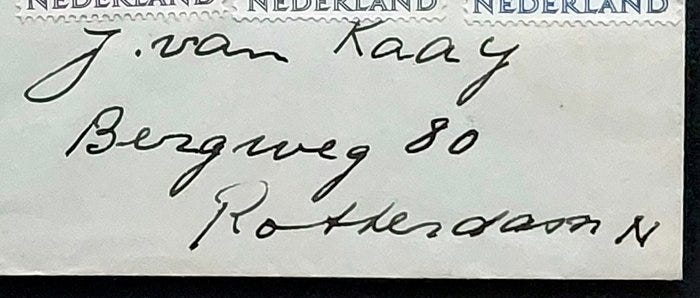 NEDERLAND NEDERLAND NEDERLAND
J. van Kaay
Bergweg 80
Rotterdam N